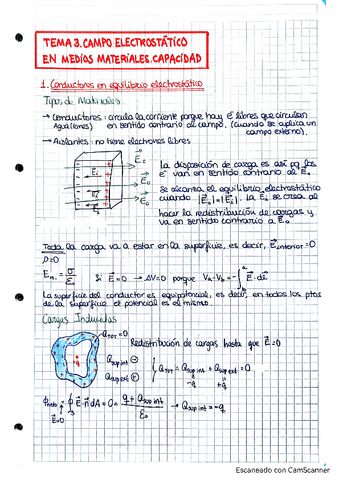 TEMA 3. CAMPO ELECTROSTÁTICO
EN MEDIOS MATERIALES. CAPACIDAD
1. Conductores en equilibrio electrostático
Tipos de Materiales
→ Conductores: circula la corriente porque hay ē libres que circulan
en sentido contrario al campo. (cuando se aplica un
campo externo).
→ Aislantes: no tiene electrones libres
La disposición de carga es así pq los
e⁻ van en sentido contrario al E⃗₀
Se alcanza el equilibrio electrostático
cuando |E⃗₀| = |E⃗i|. La E⃗i se crea al
hacer la redistribución de cargas y
va en sentido contrario a E⃗₀
Toda la carga va a estar en la superficie, es decir, E⃗interior = 0
ρ=0
Si E⃗=0 → ΔV=0 porque
La superficie del conductor es equipotencial, es decir, en todos los ptos
de la superficie el potencial es el mismo.
Cargas Inducidas
QTOT = 0
Redistribución de cargas hasta que E⃗=0
Qsup int ⊖
Qsup ext ⊕
QTOT = Qsup int + Qsup ext = 0
-q +q
→ Qsup int = -q
E⃗=0
Escaneado con CamScanner